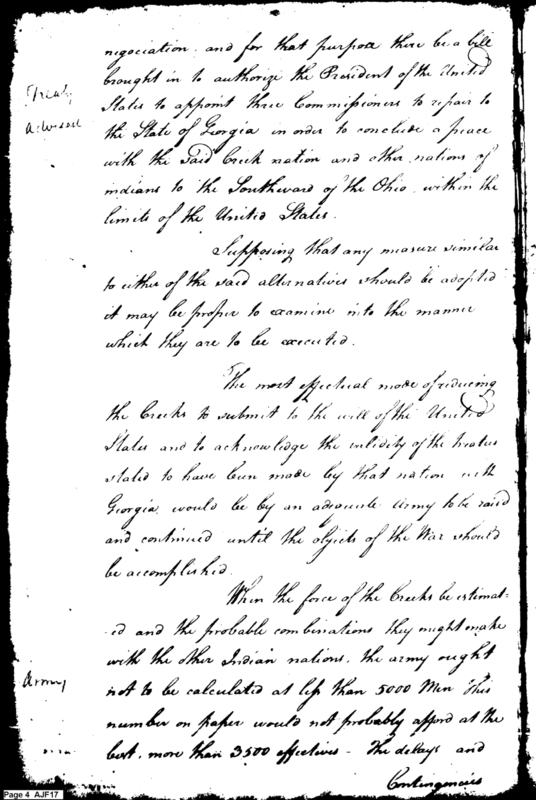 negociation. and for that purpose there be a bill
brought in to authorize the President of the United
Treaty
States to appoint three Commissioners to repair to
advised
the State of Georgia in order to conclude a peace
with the said Creek nation and other nations of
indians to the Southward of the Ohio within the
limits of the United States.
Supposing that any measure similar
to either of the said alternatives should be adopted
it may be proper to examine into the manner
which they are to be executed.
The most effectual mode of reducing
the Creeks to submit to the will of the United
States and to acknowledge the validity of the treaties
stated to have been made by that nation with
Georgia would be by an adequate army to be raised
and continued until the objects of the War should
be accomplished.
When the force of the Creeks be estimat-
ed and the probable combinations they might make
with the other Indian nations, the army ought
Army
not to be calculated at less than 5000 Men This
number on paper would not probably afford at the
best, more than 3500 effectives - The delays and
Contingencies
Page 4 AJF17